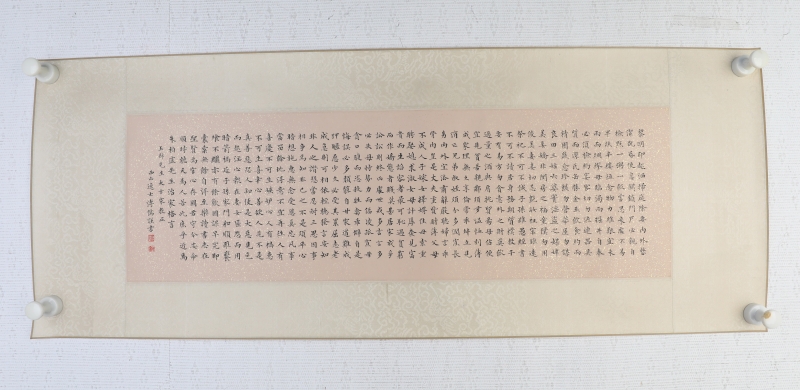 黎明即起灑掃庭除要內外整
潔既昏便息關鎖門戶必親自
檢點一粥一飯當思來處不易
半絲半縷恆念物力維艱宜未
雨而綢繆毋臨渴而掘井自奉
必須儉約宴客切勿流連器具
質而潔瓦缶勝金玉飲食約而
精園蔬愈珍饈勿營華屋勿謀
良田三姑六婆實淫盜之媒婢
美妾嬌非閨房之福童僕勿用
俊美妻妾切忌豔妝祖宗雖遠
祭祀不可不誠子孫雖愚經書
不可不讀居身務期質樸教子
要有義方勿貪意外之財勿飲
過量之酒與肩挑貿易毋佔便
宜見貧苦親鄰須加溫恤刻薄
成家理無久享倫常乖舛立見
消亡兄弟叔姪須分多潤寡長
幼內外宜法肅辭嚴聽婦言乖
骨肉豈是丈夫重資財薄父母
不成人子嫁女擇佳婿毋索重
聘娶媳求淑女毋計厚奩見富
貴而生諂容者最可恥遇貧窮
而作驕態者賤莫甚居家戒爭
訟訟則終凶處世戒多言言多
必失毋恃勢力而凌逼孤寡毋
貪口腹而恣殺牲禽乖僻自是
悔誤必多頹惰自甘家道難成
狎暱惡少久必受其累屈志老
成急則可相依輕聽發言安知
非人之譖愬當忍耐三思因事
相爭焉知非己之不是須平心
暗想施惠無念受恩莫忘凡事
當留餘地得意不宜再往人有
喜慶不可生妒嫉心人有禍患
不可生喜幸心善欲人見不是
真善惡恐人知便是大惡見色
而起淫心報在妻女匿怨而用
暗箭禍延子孫家門和順雖饔
飧不繼亦有餘歡國課早完即
囊橐無餘自得至樂讀書志在
聖賢為官心存君國守分安命
順時聽天為人若此庶乎近焉
朱柏廬先生治家格言
先生大方家教正
西山逸士溥儒謹書